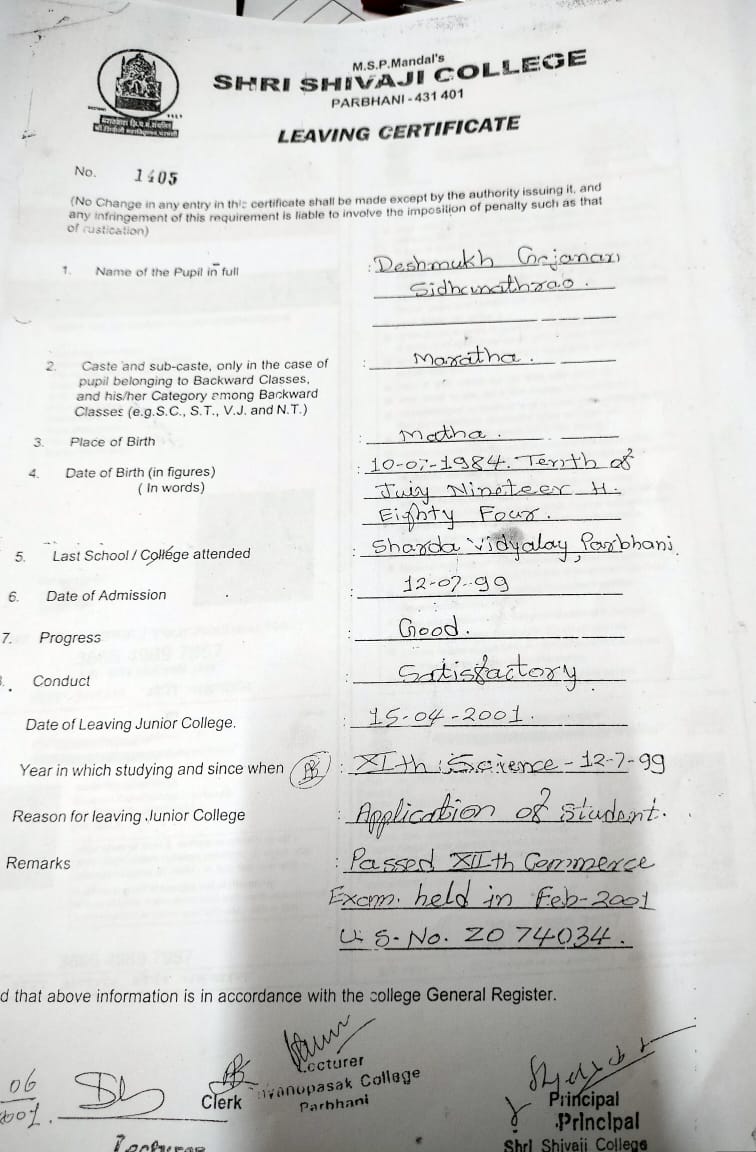 M.S.P.Mandal's
SHRI SHIVAJI COLLEGE
PARBHANI - 431 401
LEAVING CERTIFICATE
No. 1405
(No Change in any entry in this certificate shall be made except by the authority issuing it, and
any infringement of this requirement is liable to involve the imposition of penalty such as that
of rustication)
1. Name of the Pupil in full : Deshmukh Gajanan
Sidhanathrao.
2. Caste and sub-caste, only in the case of : Maratha.
pupil belonging to Backward Classes,
and his/her Category among Backward
Classes (e.g.S.C., S.T., V.J. and N.T.)
3. Place of Birth : Matha.
4. Date of Birth (in figures) : 10-07-1984. Tenth of
( In words) July Nineteen H.
Eighty Four.
5. Last School / College attended : Sharda Vidyalay, Parbhani.
6. Date of Admission : 12-07-99
7. Progress : Good.
Conduct : Satisfactory.
Date of Leaving Junior College. : 15-04-2001.
Year in which studying and since when : XIth Science - 12-7-99
Reason for leaving Junior College : Application of Student.
Remarks : Passed XIIth Commerce
Exam. held in Feb-2001
U. S. No. ZO 74034.
d that above information is in accordance with the college General Register.
06
2001.
Clerk
Lecturer
College
Parbhani
Principal
Principal
Shri Shivaji College
Lecturer